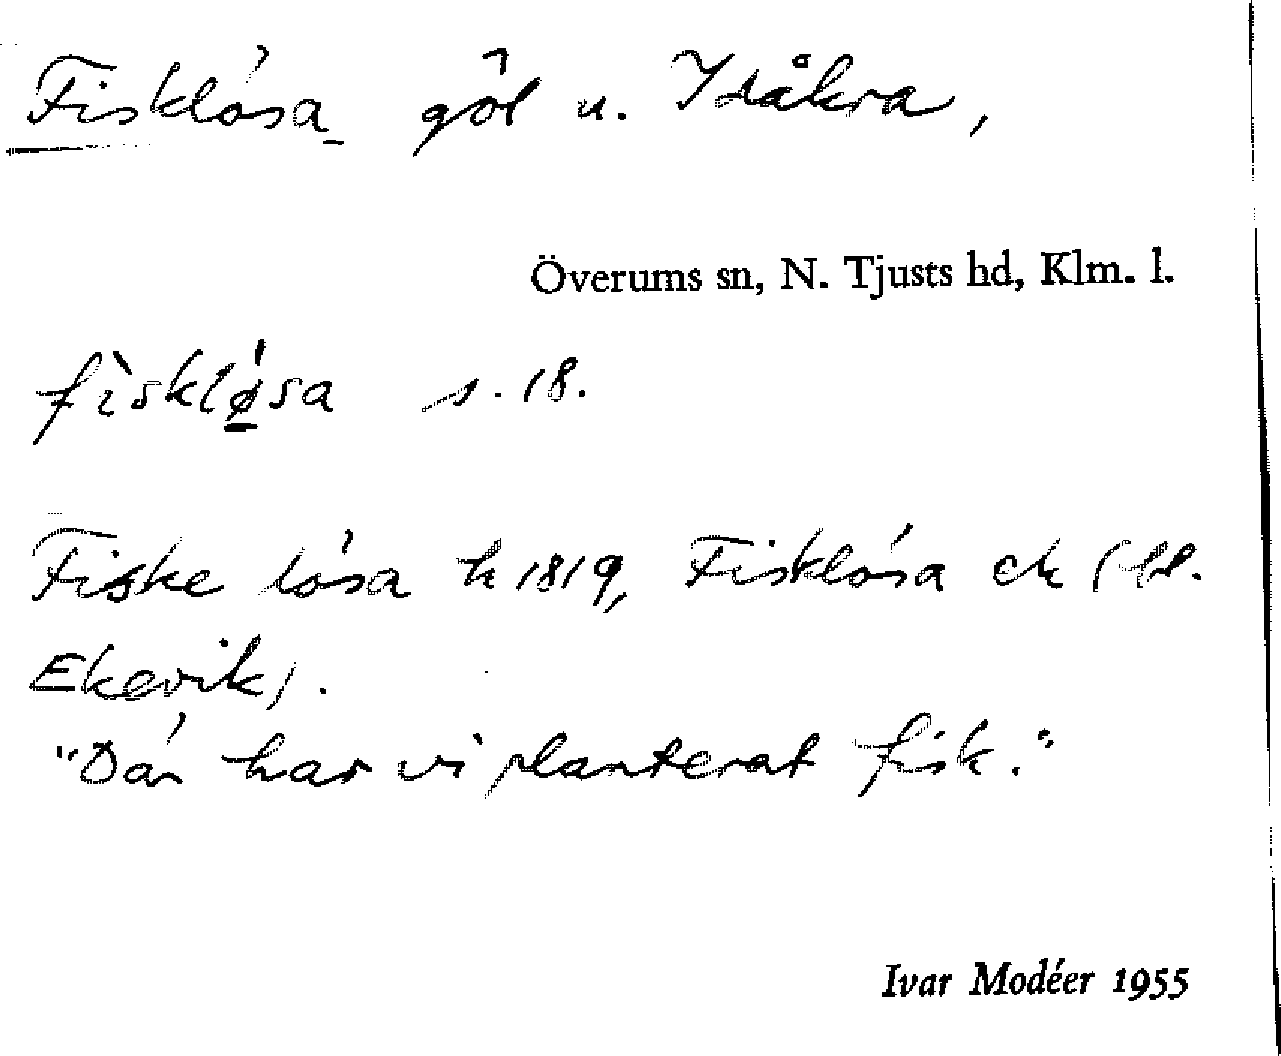 Fisklösa göl u. Idåkra,
Överums sn, N. Tjusts hd, Klm. l.
fìsklø̀sa s. 18.
Fiske lösa k 1819, Fisklösa ek (
Ekevik).
"Där har vi planterat fisk."
Ivar Modéer 1955